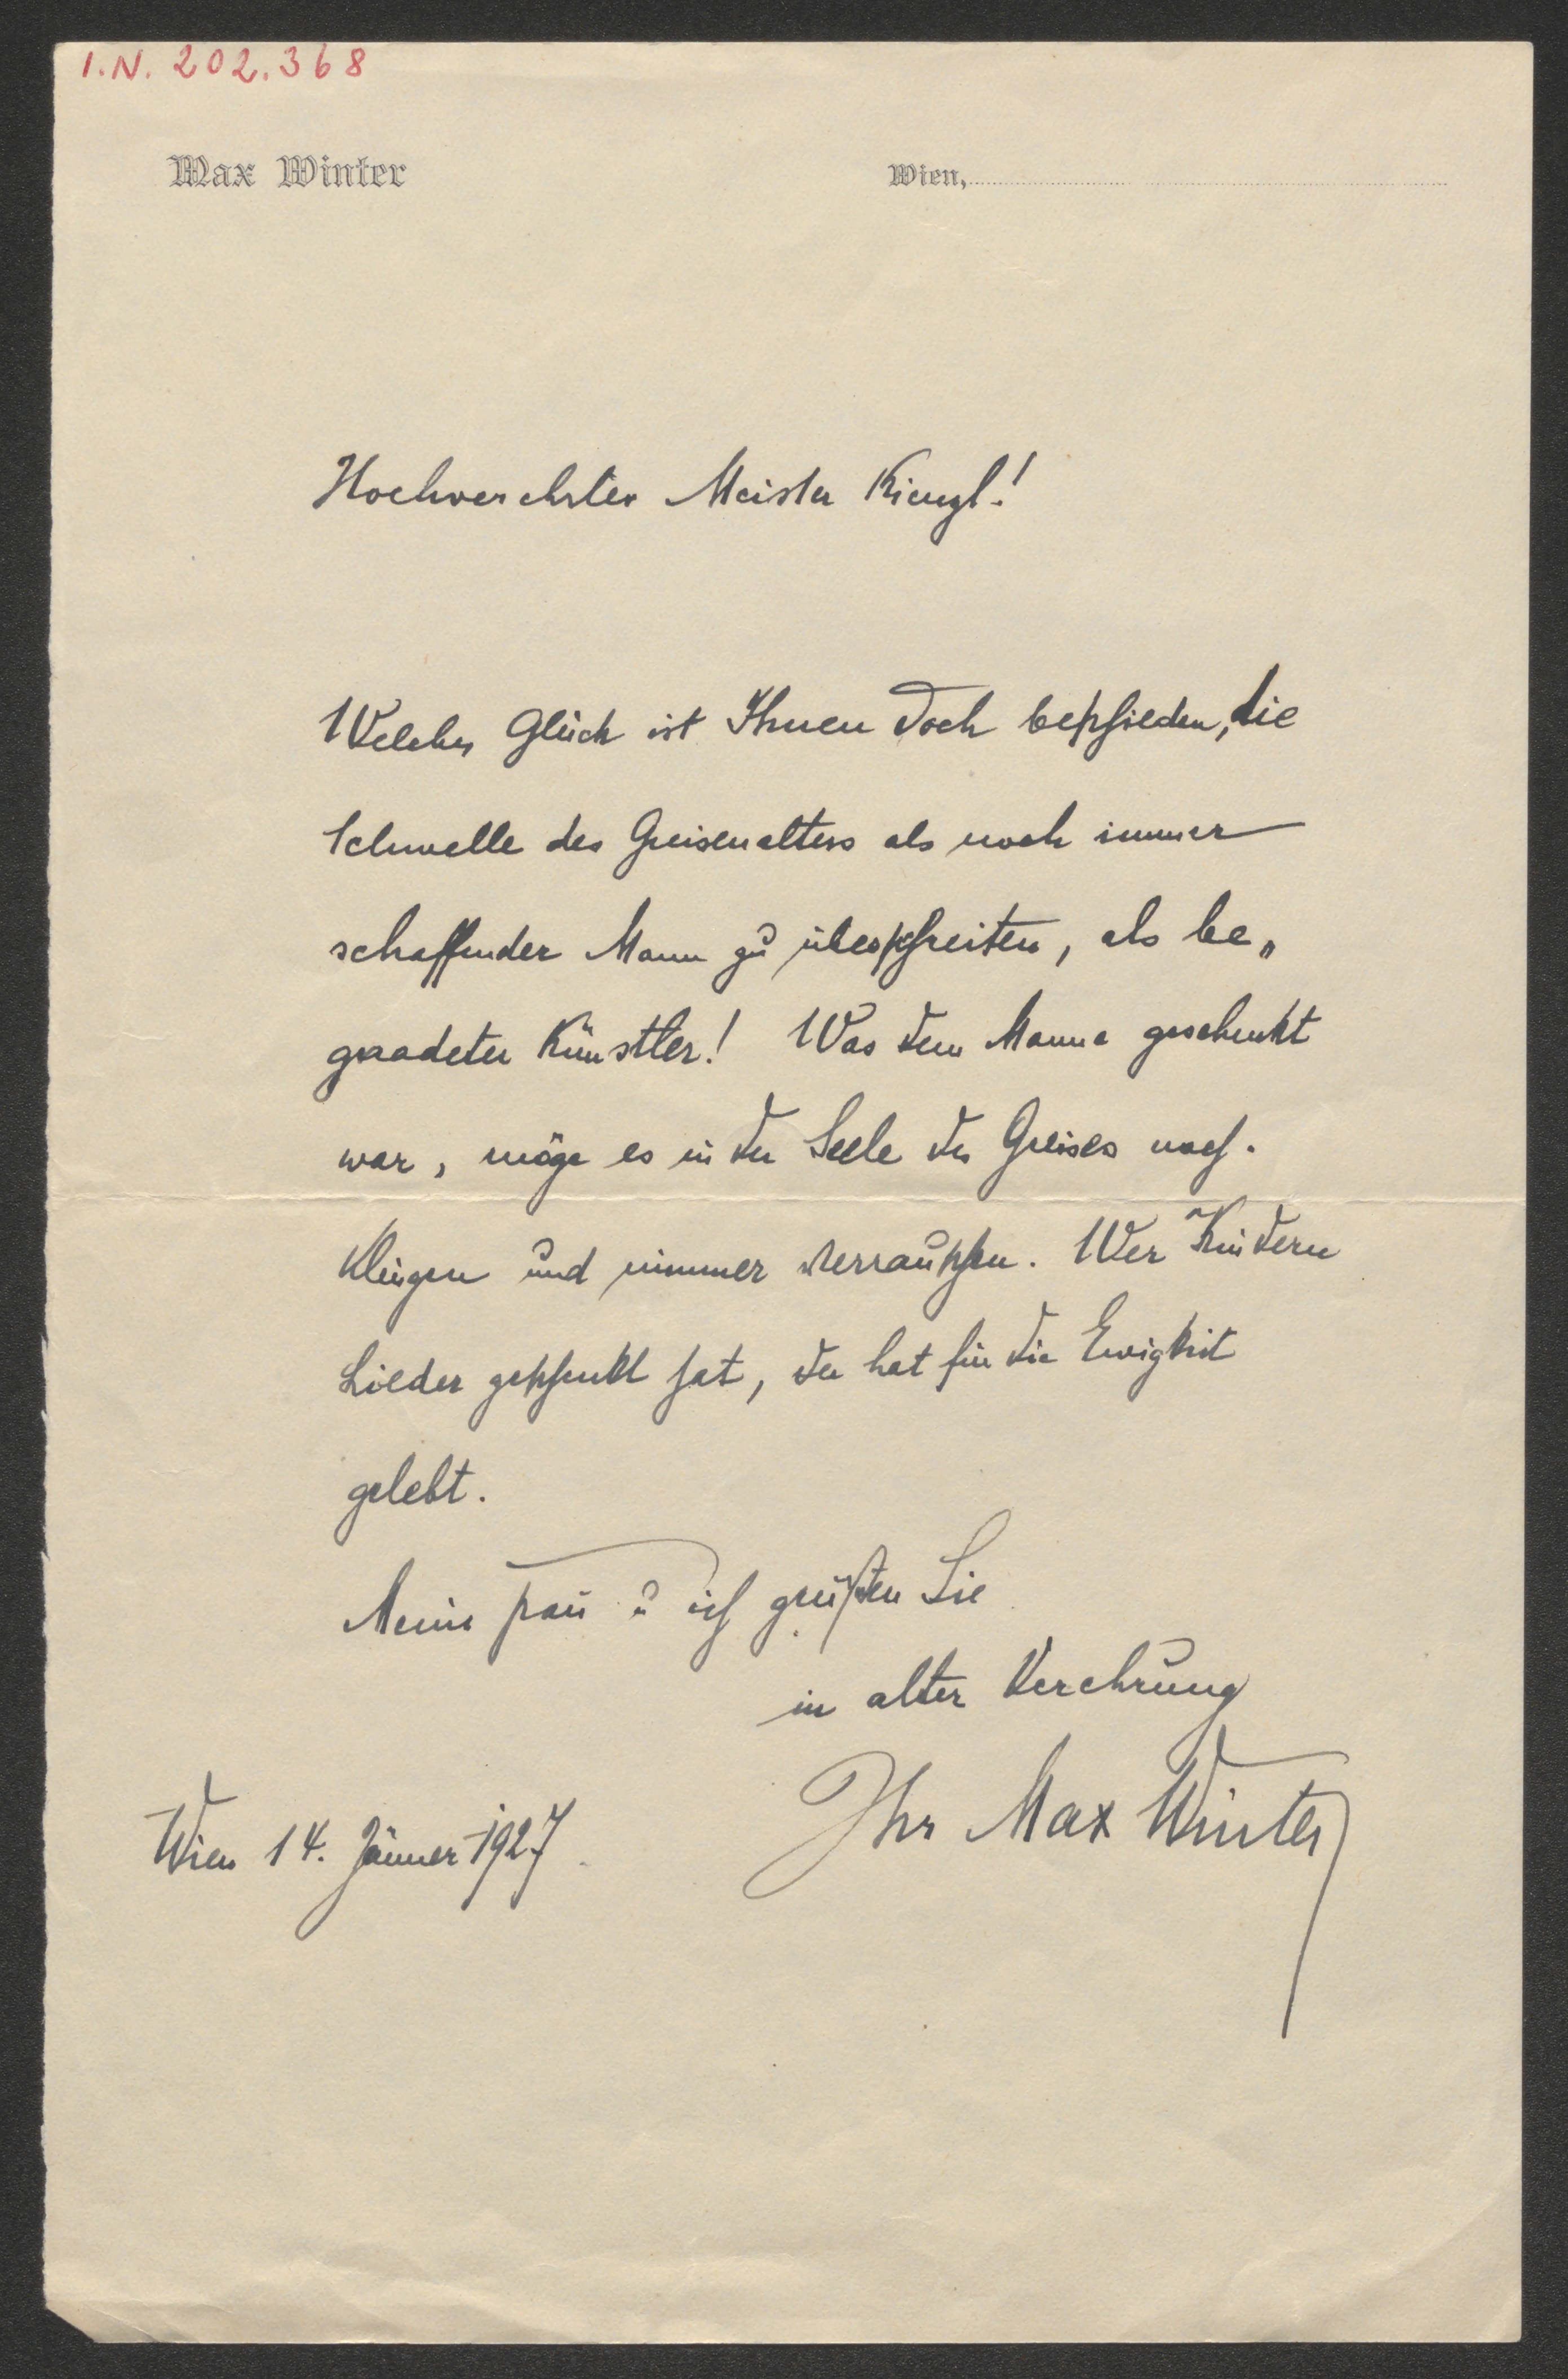 I.N. 202.368
Max Winter
Wien,
Hochverehrter Meister Kienzl!
Welches Glück ist Ihnen doch beschieden, die
Schwelle des Greisenalters als noch immer
schaffender Mann zu überschreiten, als be„
gnadeter Künstler! Was dem Manne geschenkt
war, möge es in der Seele des Greises nach-
klingen und nimmer verrauschen. Wer Kindern
Lieder geschenkt hat, der hat für die Ewigkeit
gelebt.
Meine Frau u ich grüßen Sie
in alter Verehrung
Ihr Max Winter
Wien 14. Jänner 1927